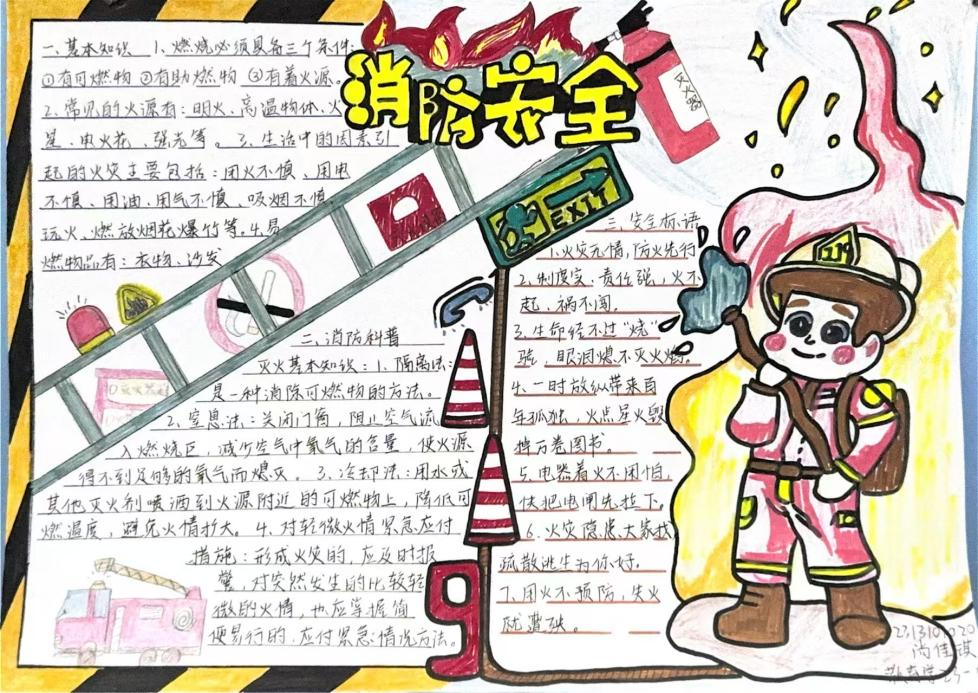 消防安全
灭火器
一、基本知识 1、燃烧必须具备三个条件:
①有可燃物 ②有助燃物 ③有着火源。
2、常见的火源有:明火、高温物体、火
星、电火花、强光等。3、生活中的因素引
起的火灾主要包括:用火不慎、用电
不慎、用油、用气不慎、吸烟不慎、
玩火、燃放烟花爆竹等。4、易
燃物品有:衣物、沙发
二、消防科普
灭火基本知识:1、隔离法:
是一种消除可燃物的方法。
2、窒息法:关闭门窗,阻止空气流
入燃烧区,减少空气中氧气的含量,使火源
得不到足够的氧气而熄灭。3、冷却法:用水或
其他灭火剂喷洒到火源附近的可燃物上,降低可
燃温度,避免火情扩大。4、对轻微火情紧急应付
措施:形成火灾的,应及时报
警,对突然发生的比较轻
微的火情,也应掌握简
便易行的,应付紧急情况方法。
EXIT
119
三、安全标语
1、火灾无情,防火先行
2、制度实、责任强,火不
起、祸不闯。
3、生命经不过“烧”
验,眼泪熄不灭火焰。
4、一时放纵带来百
年孤独,火点星火毁
掉万卷图书。
5、电器着火不用怕,
快把电闸先拉下。
6、火灾隐患大家找,
疏散逃生为你好。
7、用火不预防,失火
就遭殃。
尚佳琪